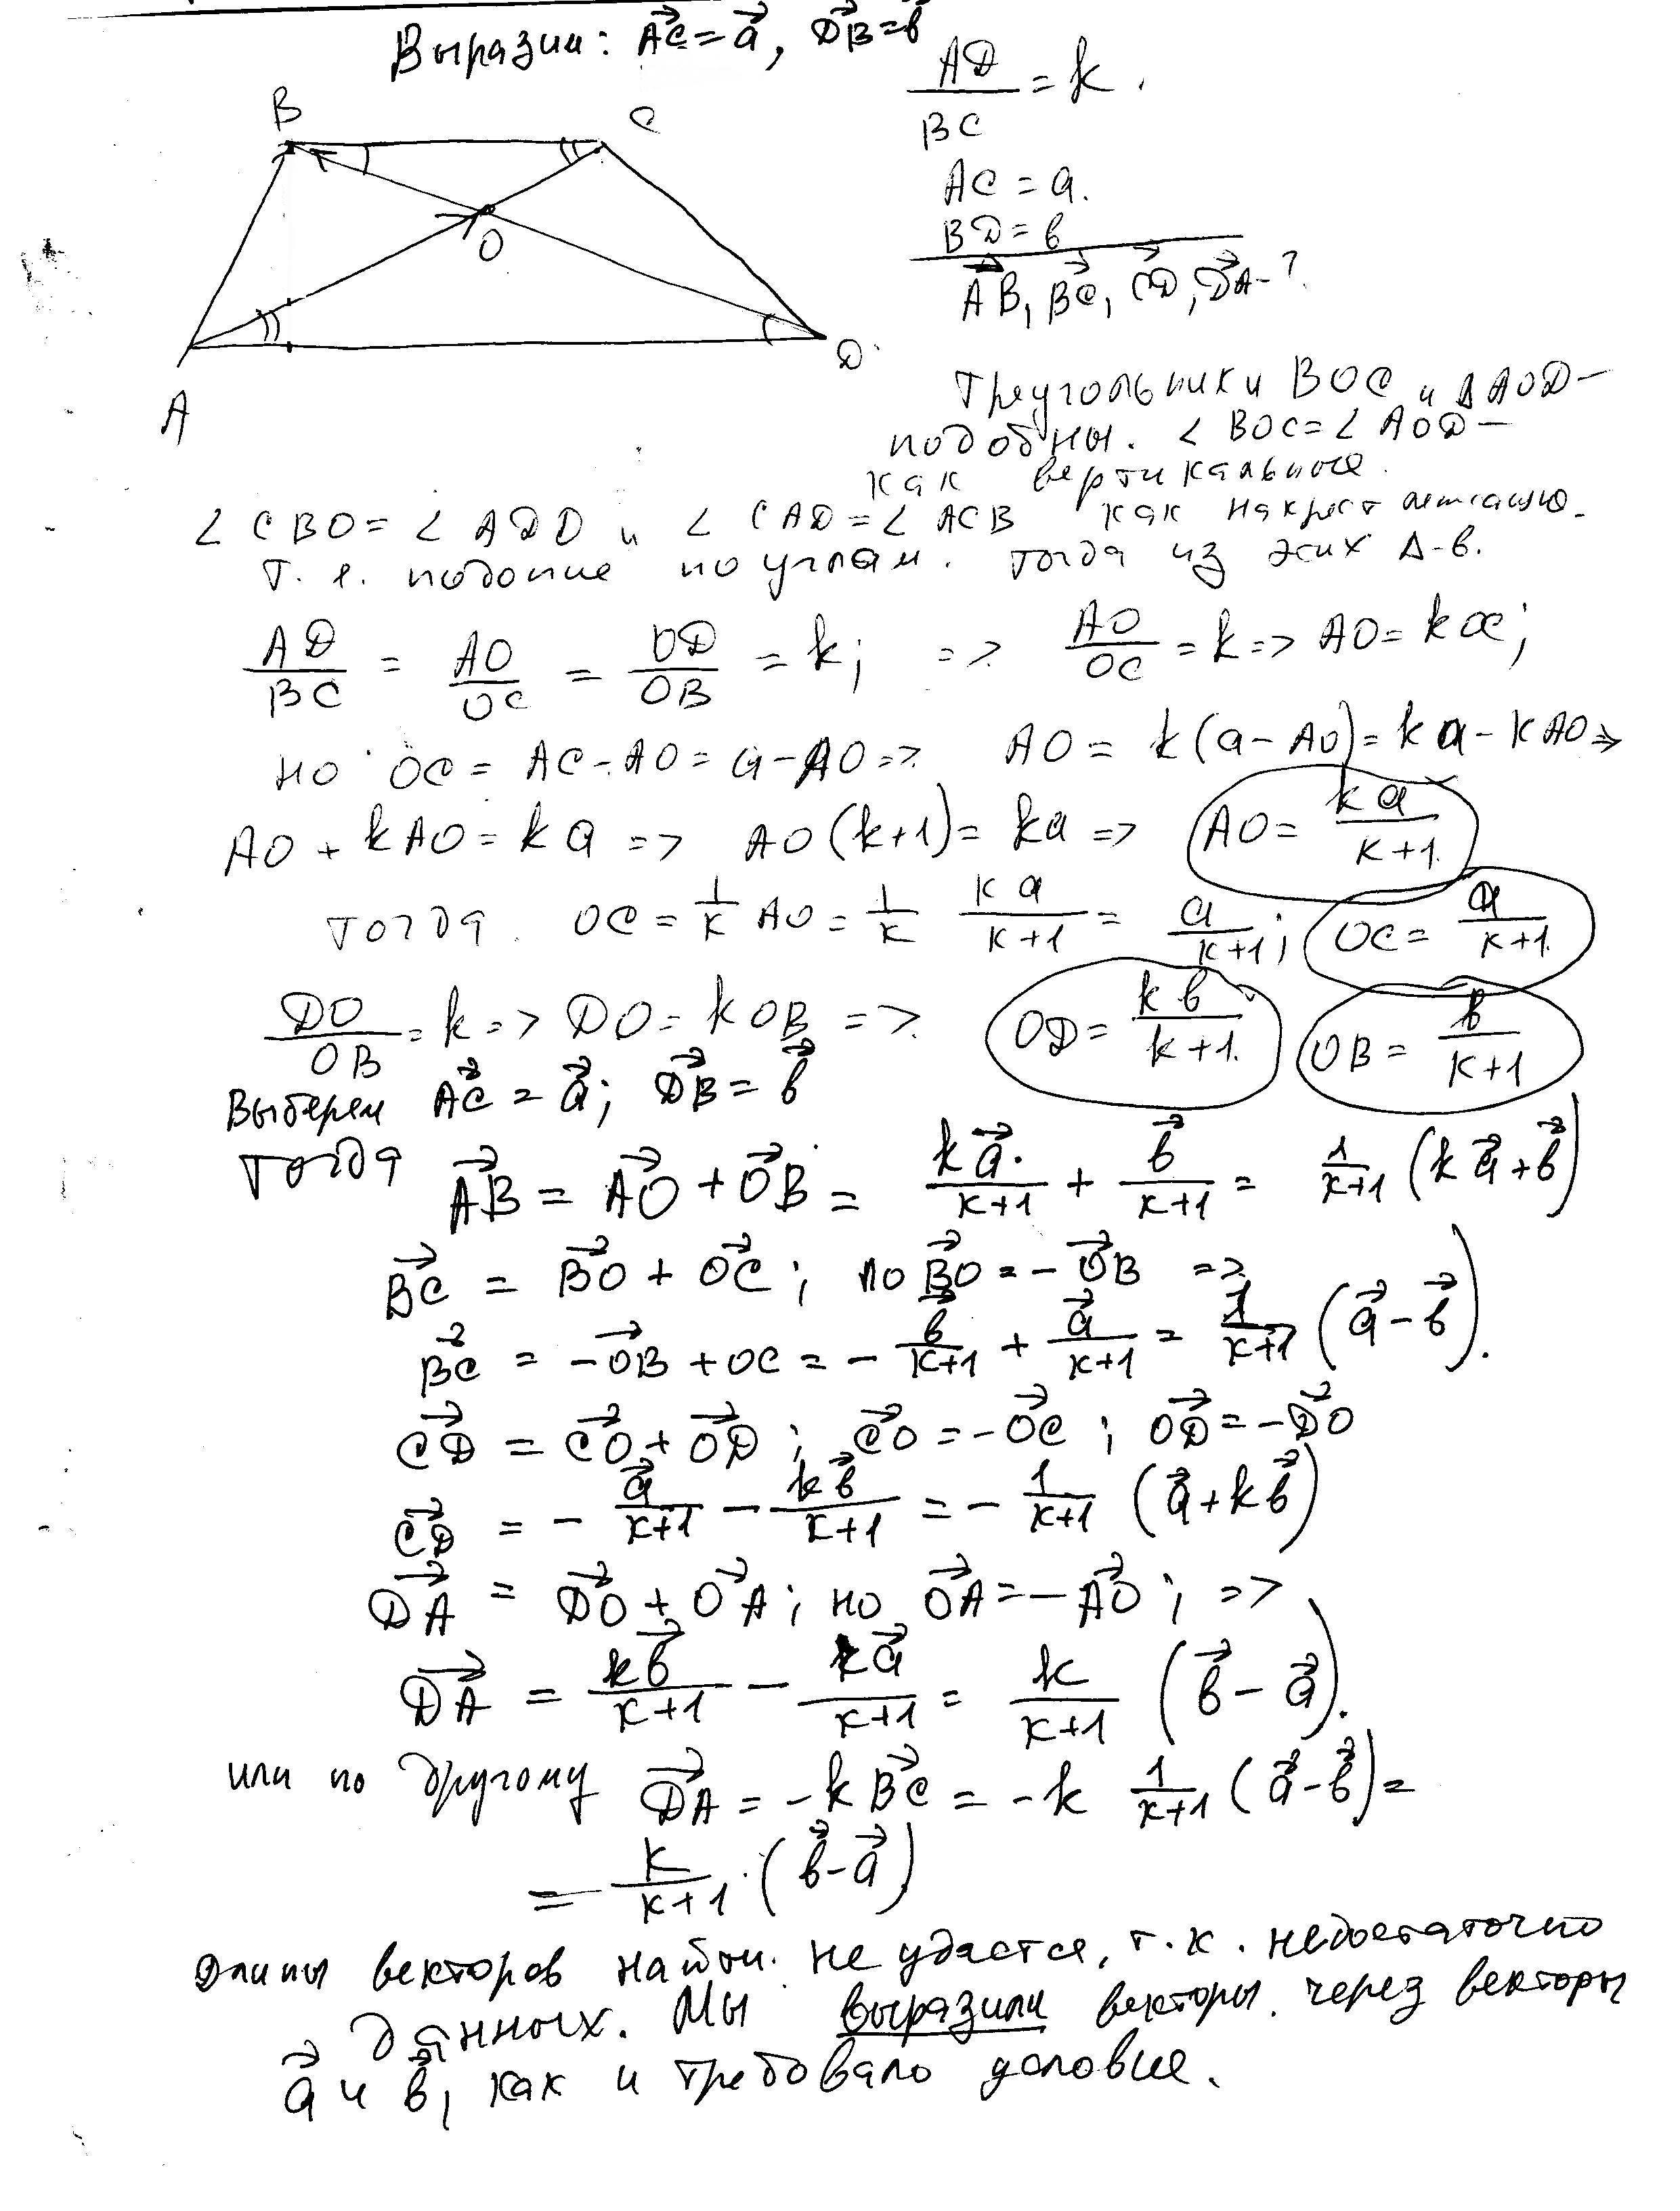 Выразим: A⃗C = a⃗, D⃗B = b⃗
AD/BC = k.
B
C
O
A
D
AC = a.
BD = b
A⃗B, B⃗C, C⃗D, D⃗A - ?
Треугольники BOC и ΔAOD –
подобны. ∠BOC = ∠AOD –
как вертикальные.
∠CBO = ∠ADO и ∠CAD = ∠ACB как накрест лежащие.
Т.е. подобие по углам. Тогда из этих Δ-в.
AD/BC = AO/OC = OD/OB = k; => AO/OC = k => AO = kOC;
но OC = AC - AO = a - AO => AO = k(a - AO) = ka - kAO =>
AO + kAO = ka => AO(k+1) = ka => AO = ka/(k+1)
тогда OC = 1/k AO = 1/k ka/(k+1) = a/(k+1); OC = a/(k+1)
DO/OB = k => DO = kOB => OD = kb/(k+1) OB = b/(k+1)
Выберем A⃗C = a⃗; D⃗B = b⃗
тогда A⃗B = A⃗O + O⃗B = ka⃗/(k+1) + b⃗/(k+1) = 1/(k+1) (ka⃗ + b⃗)
B⃗C = B⃗O + O⃗C; но B⃗O = -O⃗B =>
B⃗C = -O⃗B + OC = - b⃗/(k+1) + a⃗/(k+1) = 1/(k+1) (a⃗ - b⃗).
C⃗D = C⃗O + O⃗D; C⃗O = -O⃗C; O⃗D = -D⃗O
C⃗D = - a⃗/(k+1) - kb⃗/(k+1) = - 1/(k+1) (a⃗ + kb⃗)
D⃗A = D⃗O + O⃗A; но O⃗A = -A⃗O; =>
D⃗A = kb⃗/(k+1) - ka⃗/(k+1) = k/(k+1) (b⃗ - a⃗).
или по другому D⃗A = -kB⃗C = -k 1/(k+1) (a⃗ - b⃗) =
= k/(k+1) · (b⃗ - a⃗)
Длины векторов найти не удастся, т.к. недостаточно
данных. Мы выразили векторы через векторы
a⃗ и b⃗, как и требовало условие.